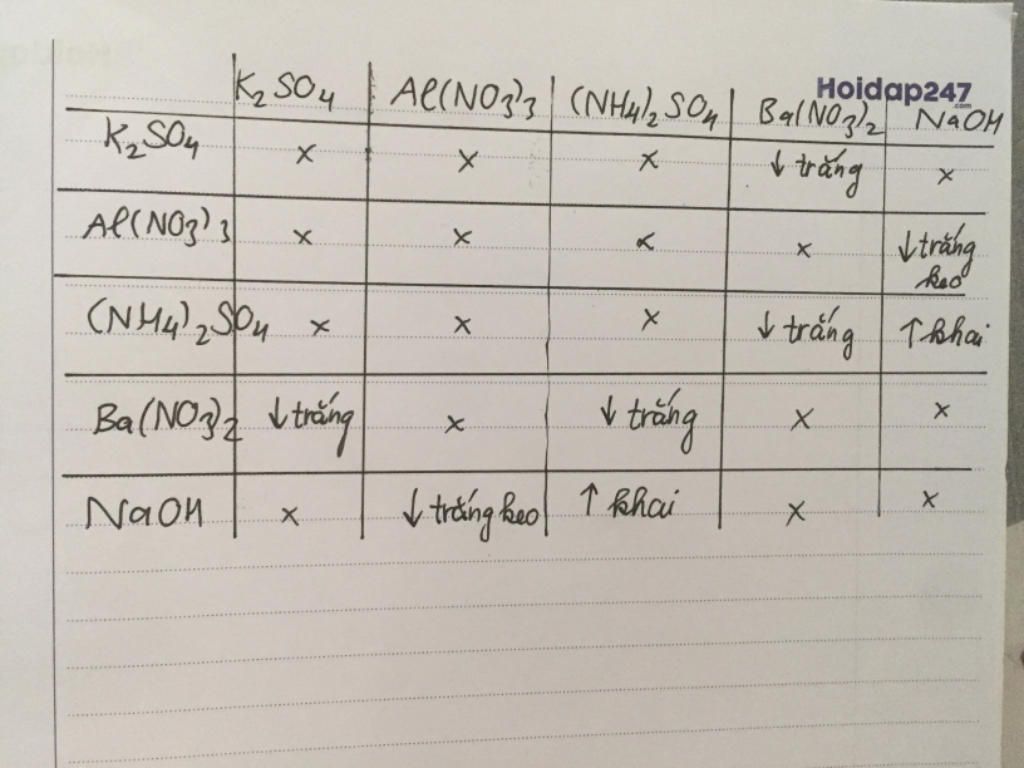 K2SO4 Al(NO3)3 (NH4)2SO4 Ba(NO3)2 NaOH
Hoidap247
.com
K2SO4 x x x ↓ trắng x
Al(NO3)3 x x x x ↓ trắng
keo
(NH4)2SO4 x x x ↓ trắng ↑ khai
Ba(NO3)2 ↓ trắng x ↓ trắng x x
NaOH x ↓ trắng keo ↑ khai x x